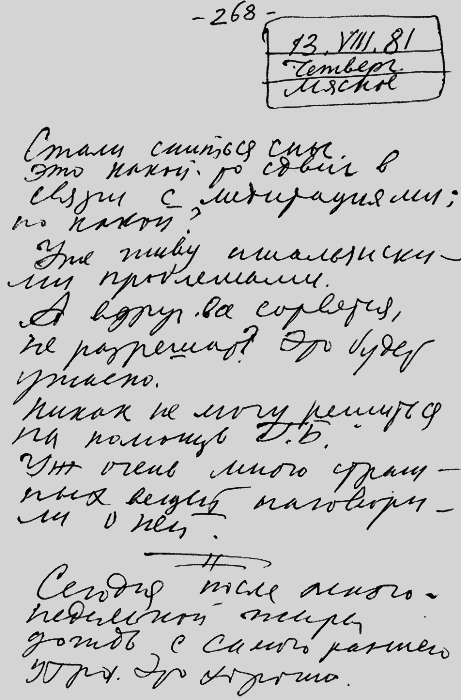 - 268 -
13. VIII. 81
Четверг.
Мясное
Стали сниться сны.
это какой-то сдвиг в
связи с медитациями;
но какой?
Уже живу итальянски-
ми проблемами.
А вдруг все сорвется,
не разрешат? Это будет
ужасно.
Никак не могу решиться
на помощь Д.Б.
Уж очень много страш-
ных вещей наговори-
ли о ней.
Сегодня после много-
недельной жары
дождь с самого раннего
утра. Это хорошо.